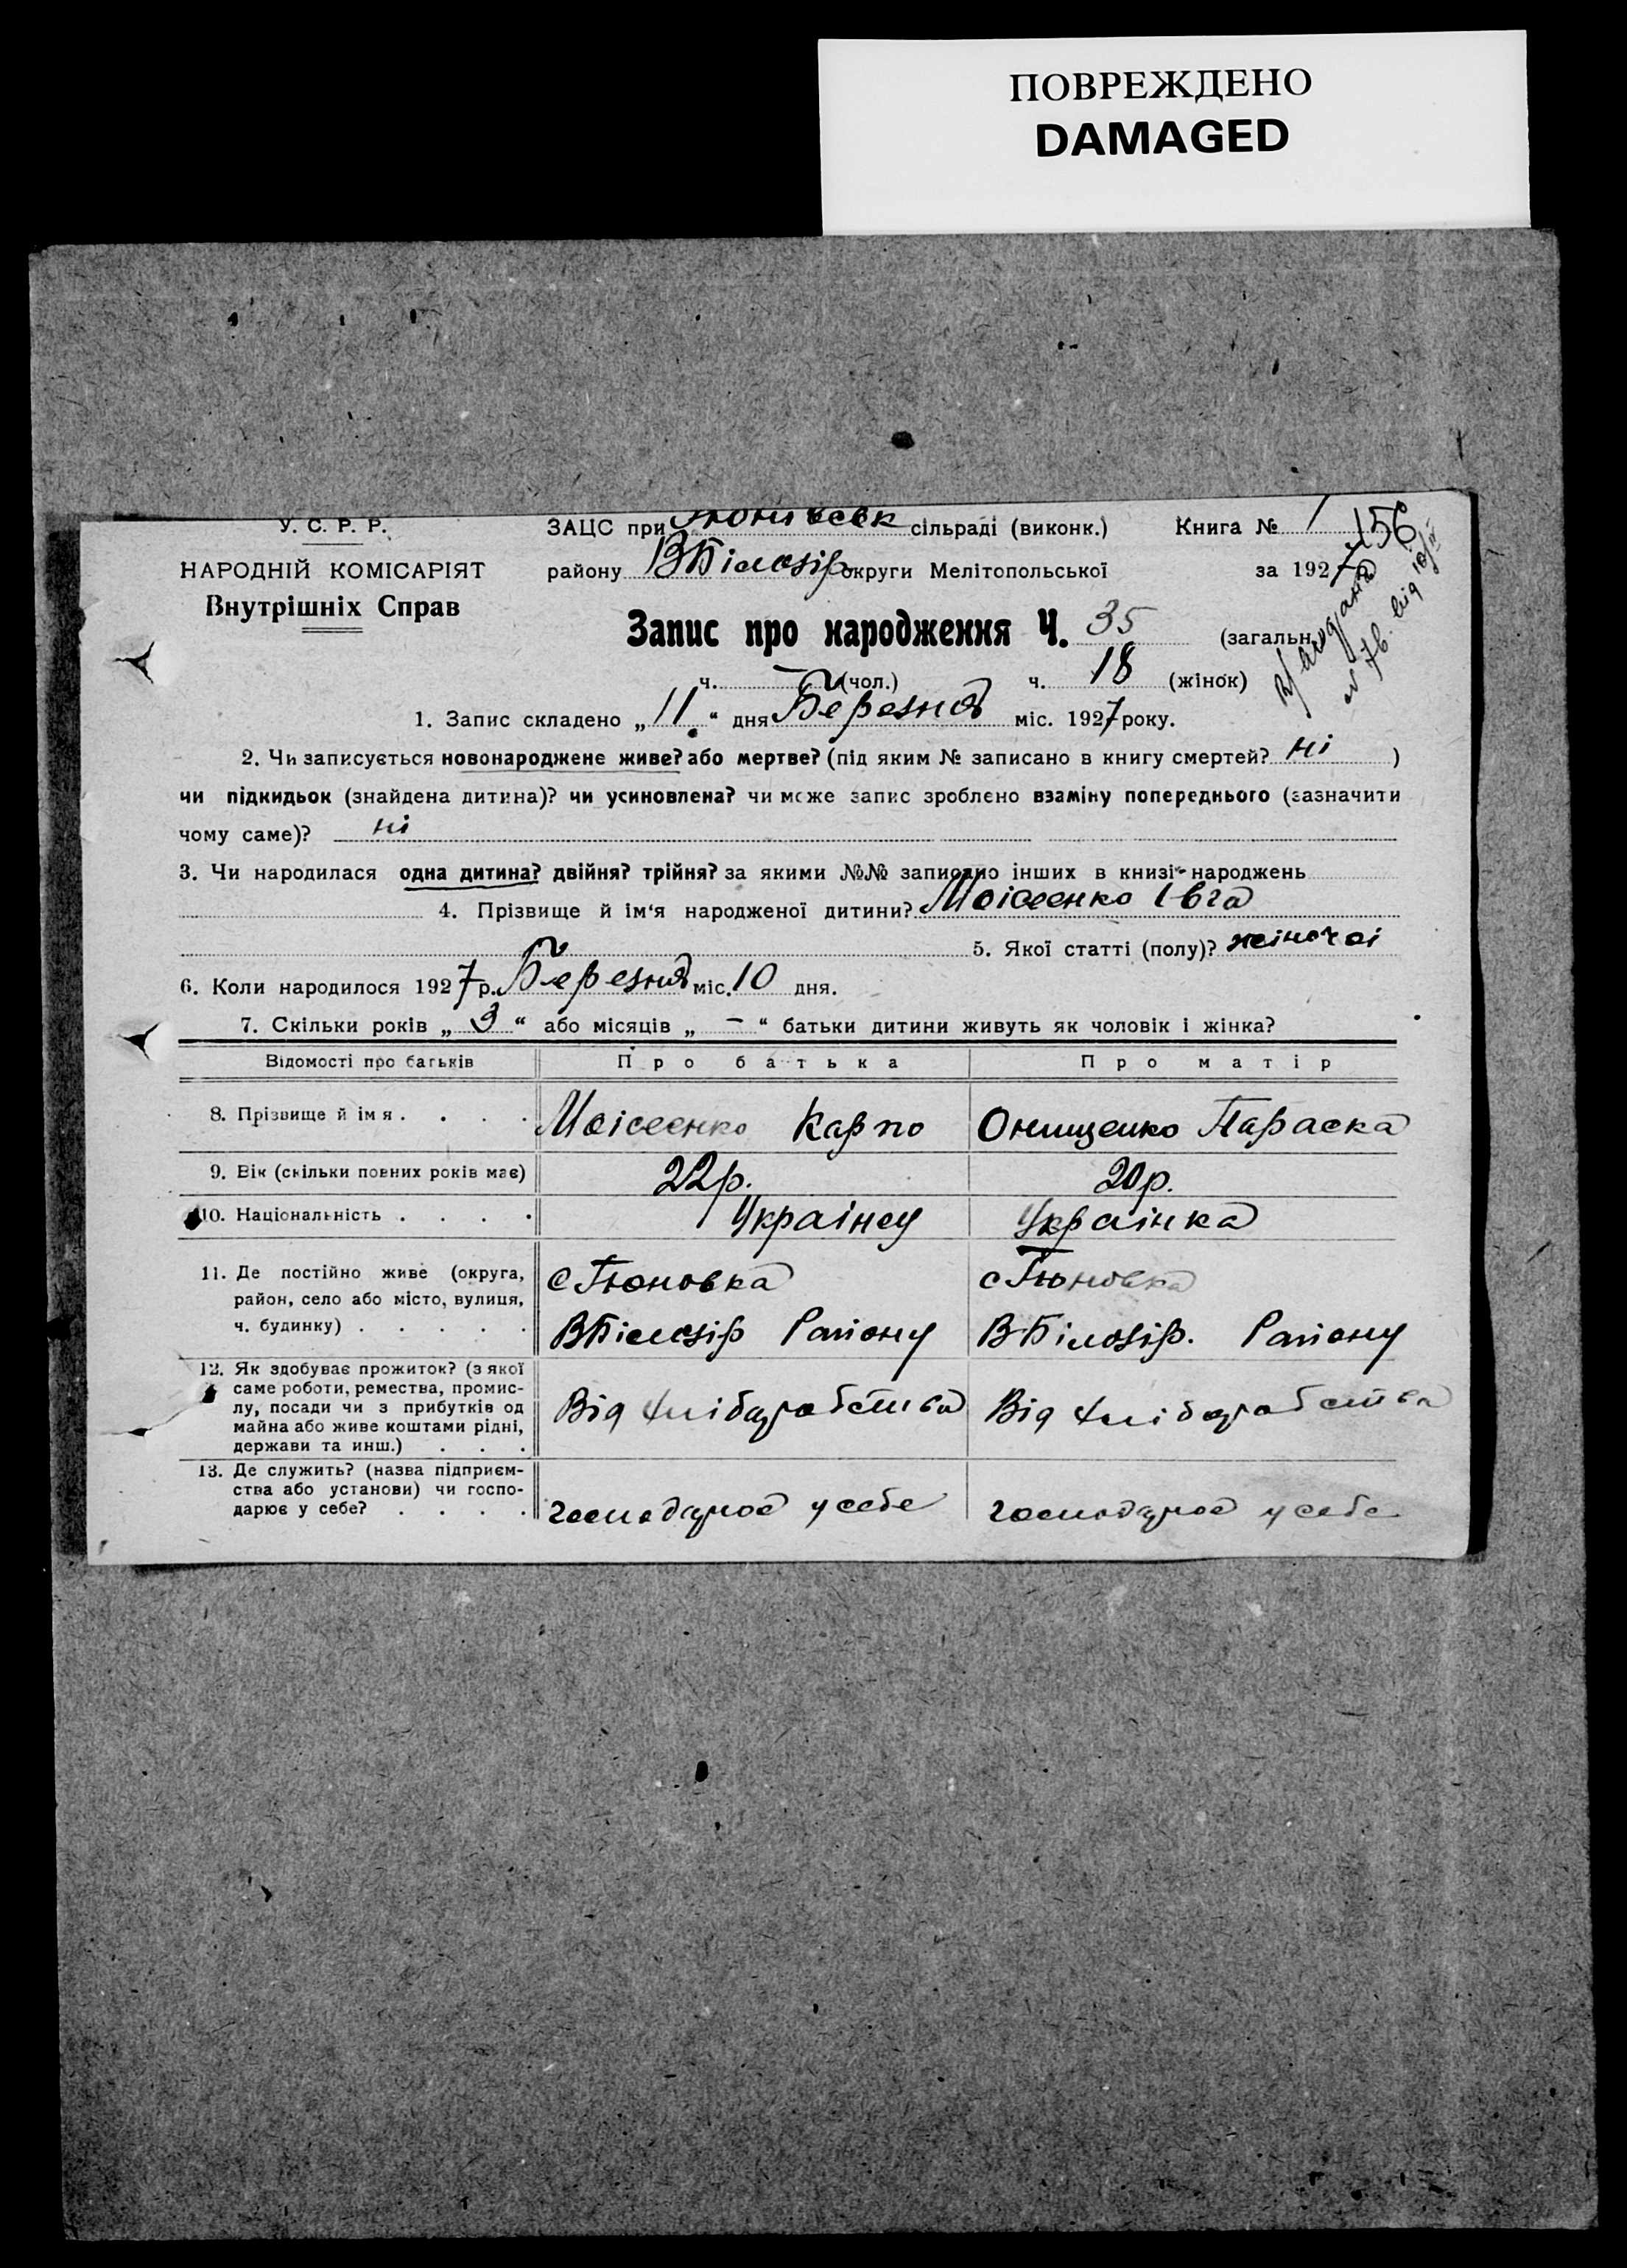 ПОВРЕЖДЕНО
DAMAGED
У. С. Р. Р.
НАРОДНІЙ КОМІСАРІЯТ
Внутрішніх Справ
ЗАЦС при сільраді (виконк.) Книга № 1 156
району ВБілозір округи Мелітопольської за 1927 р.
Запис про народження Ч. 35 (загальн.
ч. — (чол.) ч. 18 (жінок)
від
1. Запис складено „11“ дня Березня міс. 1927 року.
2. Чи записується новонароджене живе? або мертве? (під яким № записано в книгу смертей? ні )
чи підкидьок (знайдена дитина)? чи усиновлена? чи може запис зроблено взаміну попереднього (зазначити
чому саме)? ні
3. Чи народилася одна дитина? двійня? трійня? за якими №№ записано інших в книзі народжень
4. Прізвище й ім‘я народженої дитини? Моісеєнко Івга
5. Якої статті (полу)? жіночоі
6. Коли народилося 1927 р. Березня міс. 10 дня.
7. Скільки років „3“ або місяців „—“ батьки дитини живуть як чоловік і жінка?
Відомості про батьків Про батька Про матір
8. Прізвище й імя . . . . Моісеєнко Карпо Онищенко Параска
9. Вік (скільки повних років має) 22р. 20р.
10. Національність . . . . Украінец Украінка
11. Де постійно живе (округа,
район, село або місто, вулиця,
ч. будинку) . . . . .
с Тюновка
ВБілозір Району
с Тюновка
ВБілозір. Району
12. Як здобуває прожиток? (з якої
саме роботи, ремества, промис-
лу, посади чи з прибутків од
майна або живе коштами рідні,
держави та инш.) . . .
Від хлібаробства
Від хлібаробства
13. Де служить? (назва підприєм-
ства або установи) чи госпо-
дарює у себе? . . . .
господарює у себе
господарює у себе